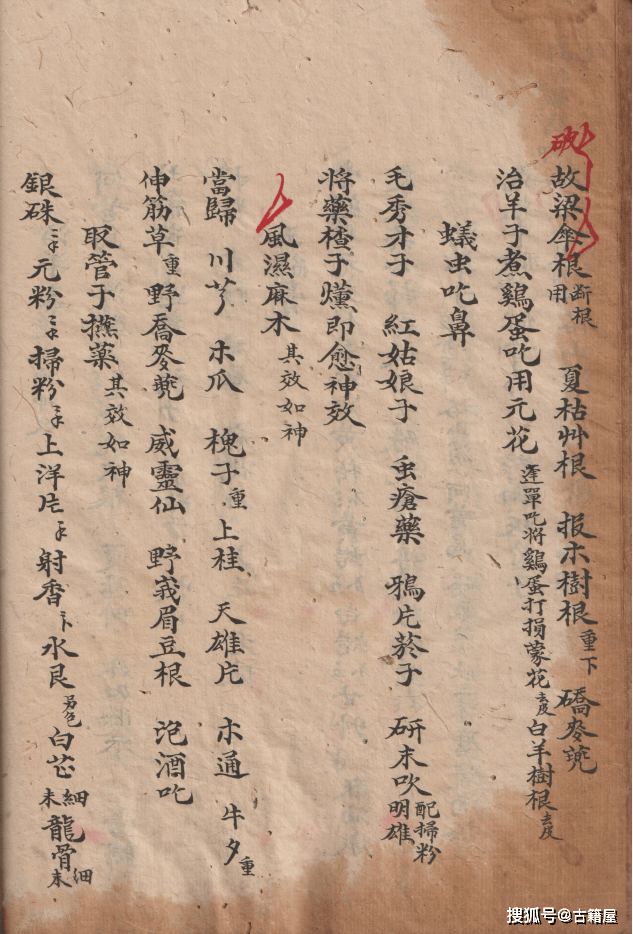 故梁傘根用断根 夏枯艸根 报木樹根重下 礄麥蔸
治羊子煮鷄蛋吃用元花逢單吃將鷄蛋打損蒙花去皮白羊樹根去皮
蟻虫吃鼻
毛秀才子 紅姑娘子 虫瘡藥 鴉片菸子 研末吹配掃粉明雄
將藥楂子爋即愈神效
風濕麻木其效如神
當歸 川芎 木瓜 槐子重 上桂 天雄片 木通 牛夕重
伸筋草重 野喬麥蔸 威靈仙 野峩眉豆根 泡酒吃
取管子撫藥其效如神
銀硃 元粉 掃粉 上洋片 射香 水艮 另包 白芯 細末 龍骨 細末
搜狐号@古籍屋